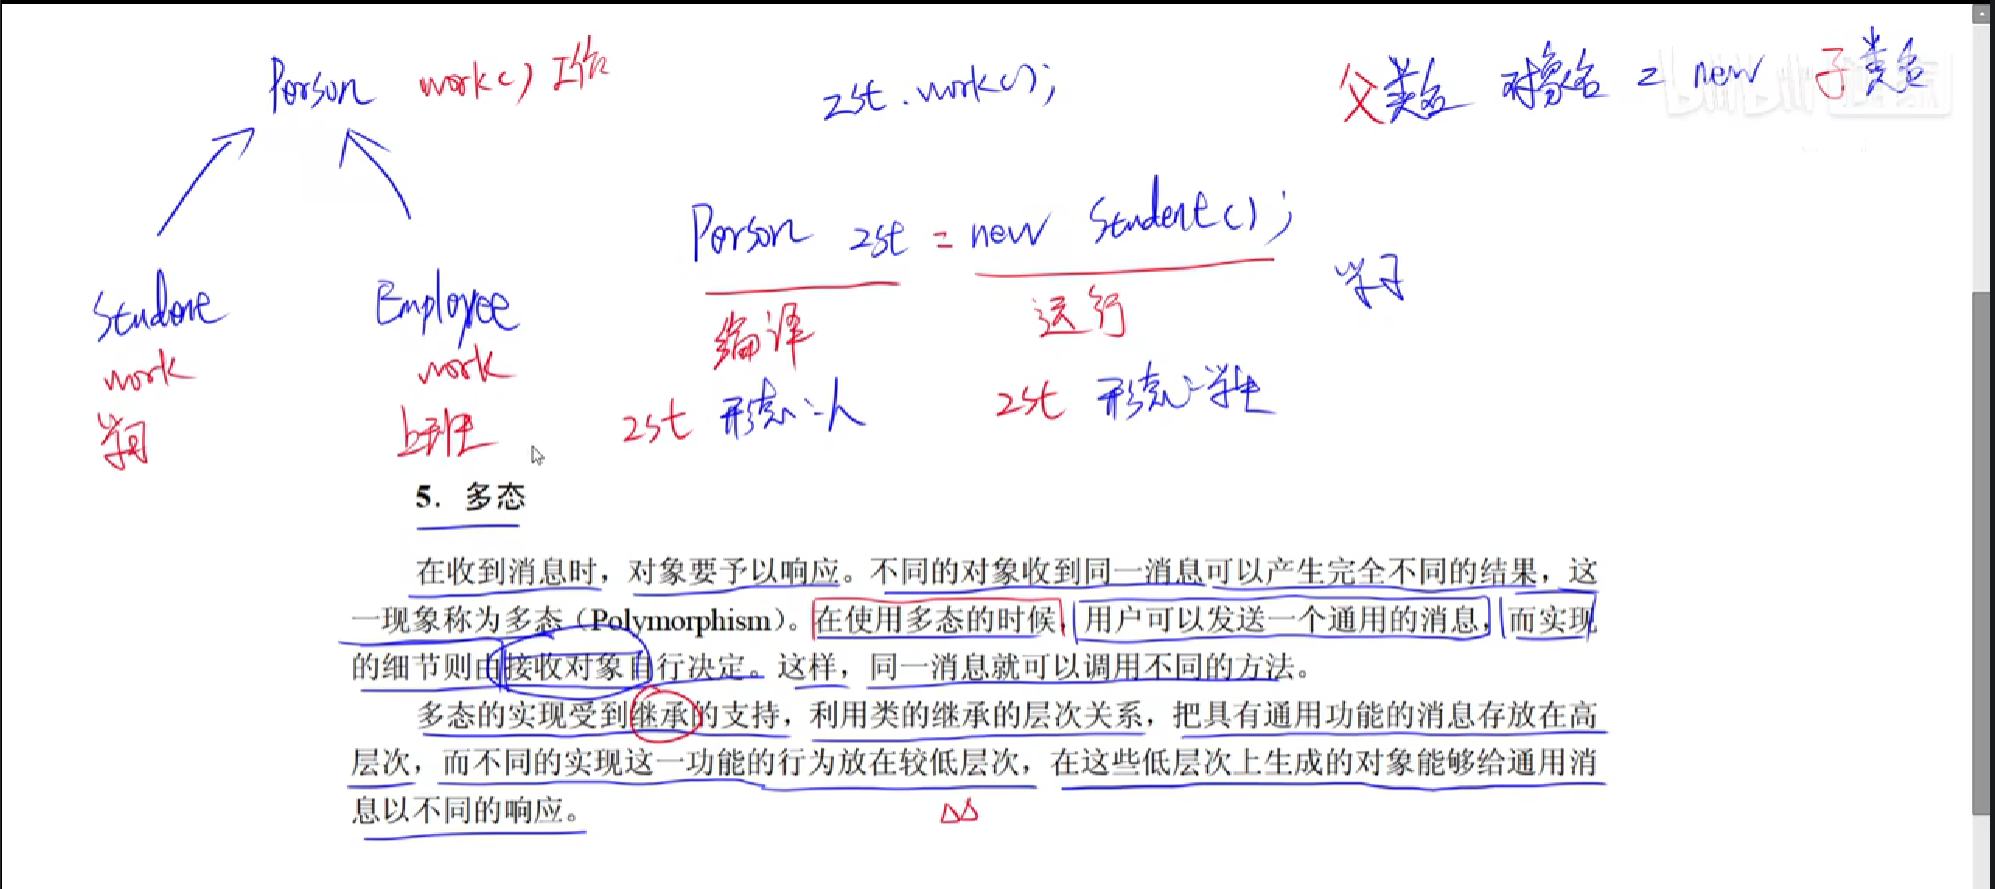 Person work() 工作
zst.work();
父类名 对象名 = new 子类名
Person zst = new Student();
Student
Employee
编译
运行
学习
work
work
zst 形态:人
zst 形态:学生
学习
上班
5. 多态
在收到消息时，对象要予以响应。不同的对象收到同一消息可以产生完全不同的结果，这
一现象称为多态（Polymorphism）。在使用多态的时候，用户可以发送一个通用的消息，而实现
的细节则由接收对象自行决定。这样，同一消息就可以调用不同的方法。
多态的实现受到继承的支持，利用类的继承的层次关系，把具有通用功能的消息存放在高
层次，而不同的实现这一功能的行为放在较低层次，在这些低层次上生成的对象能够给通用消
息以不同的响应。